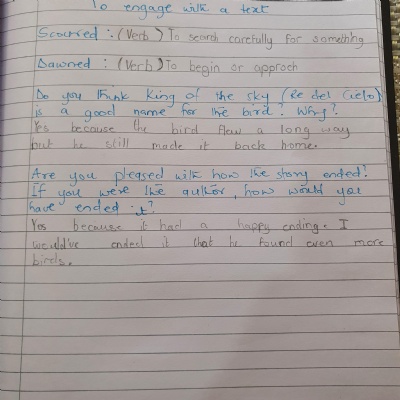 To engage with a text
Scoured : (Verb) To search carefully for something
Dawned : (Verb) To begin or approch
Do you think King of the sky (Re del Cielo)
is a good name for the bird? Why?
Yes because the bird flew a long way
but he still made it back home.
Are you pleased with how the story ended?
If you were the author, how would you
have ended it?
Yes because it had a happy ending. I
would've ended it that he found even more
birds.